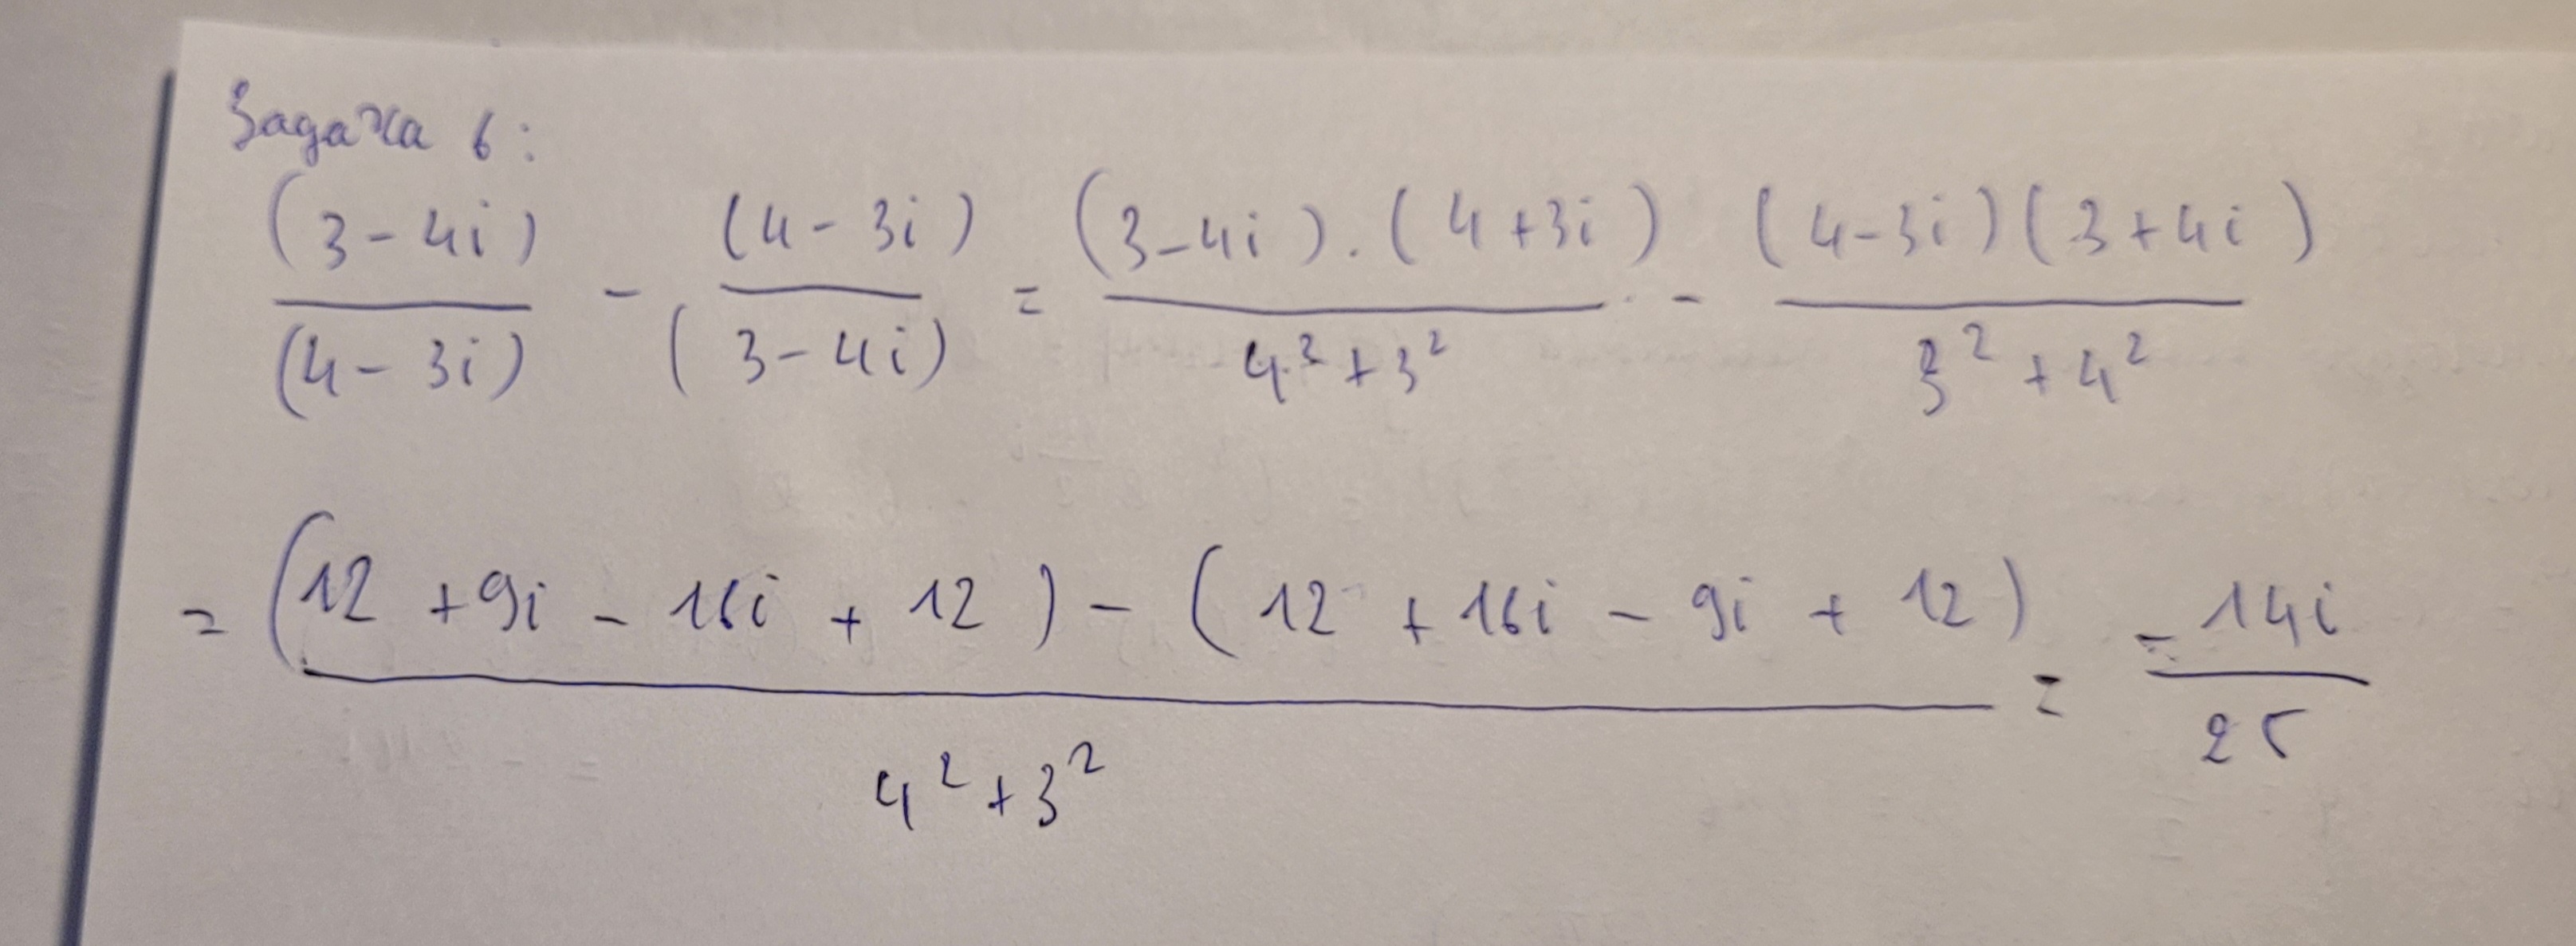 Задача 6:
(3-4i)/(4-3i) - (4-3i)/(3-4i) = (3-4i).(4+3i)/4²+3² - (4-3i)(3+4i)/3²+4²
= (12+9i-16i+12)-(12+16i-9i+12)/4²+3² = -14i/25